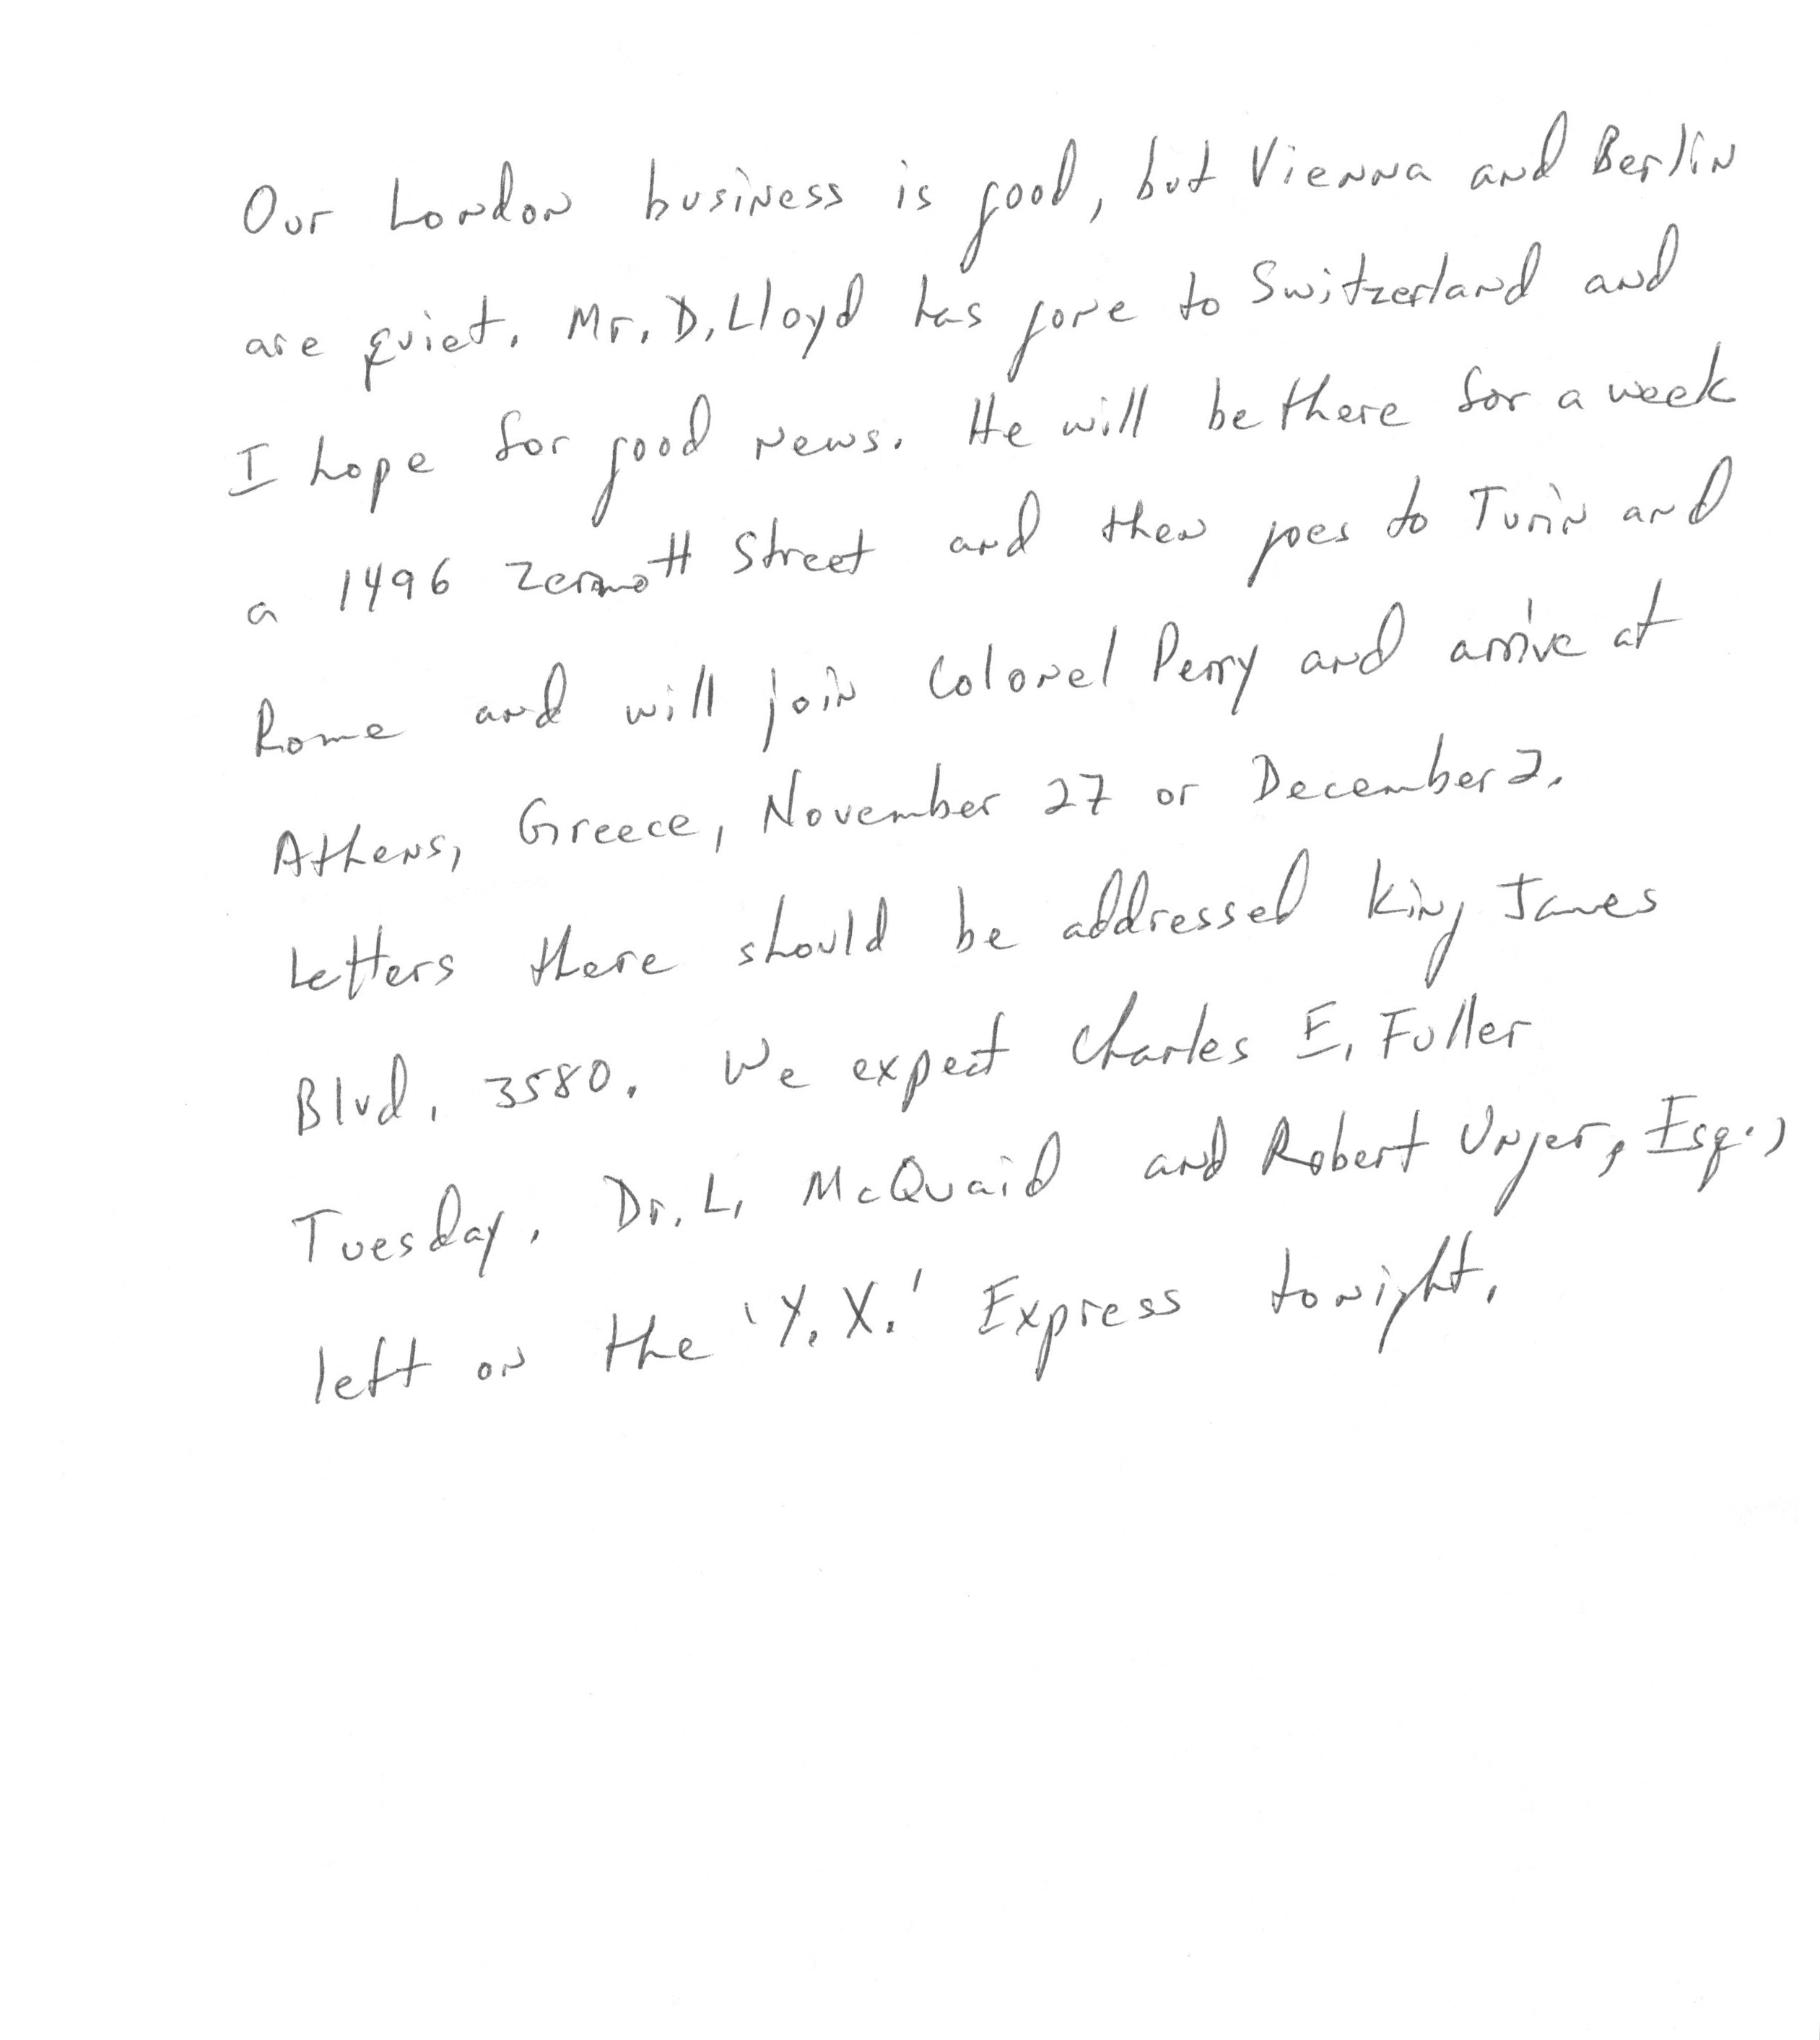 Our London business is good, but Vienna and Berlin
are quiet. Mr. D. Lloyd has gone to Switzerland and
I hope for good news. He will be there for a week
a 1496 Zermott Street and then goes to Turin and
Rome and will join Colonel Perry and arrive at
Athens, Greece, November 27 or December 2.
Letters there should be addressed King James
Blvd. 3580. We expect Charles E. Fuller
Tuesday. Dr. L. McQuaid and Robert Unger, Esq.,
left on the 'Y.X.' Express tonight.